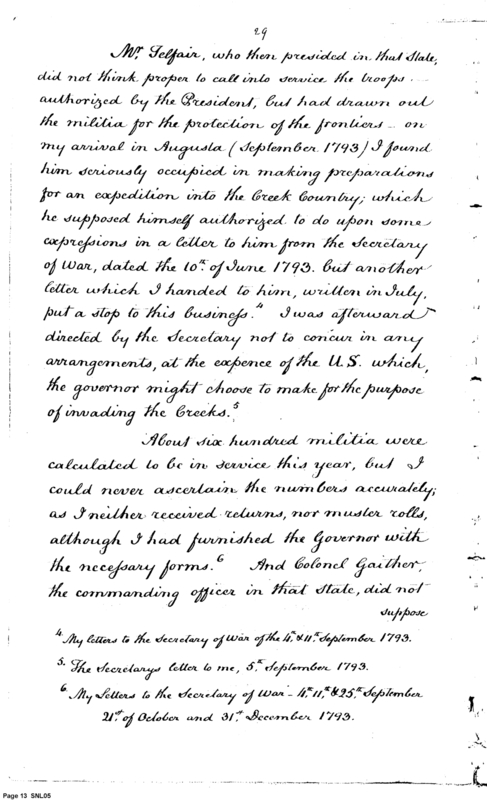 29
Mr. Telfair, who then presided in that State,
did not think proper to call into service the troops
authorized by the President, but had drawn out
the militia for the protection of the frontiers – on
my arrival in Augusta (September 1793) I found
him seriously occupied in making preparations
for an expedition into the Creek Country; which
he supposed himself authorized to do upon some
expressions in a letter to him from the Secretary
of War, dated the 10th. of June 1793. but another
letter which I handed to him, written in July,
put a stop to this business.4 I was afterward
directed by the Secretary not to concur in any
arrangements, at the expence of the U.S. which,
the governor might choose to make for the purpose
of invading the Creeks.5
About six hundred militia were
calculated to be in service this year, but I
could never ascertain the numbers accurately;
as I neither received returns, nor muster rolls,
although I had furnished the Governor with
the necessary forms.6 And Colonel Gaither,
the commanding officer in that State, did not
suppose
4. My letters to the Secretary of War of the 4th & 11th. September 1793.
5. The Secretarys letter to me, 5th September 1793.
6. My Letters to the Secretary of War – 4th. 11th. & 25th. September
21st. of October and 31st. December 1793.
Page 13 SNL05